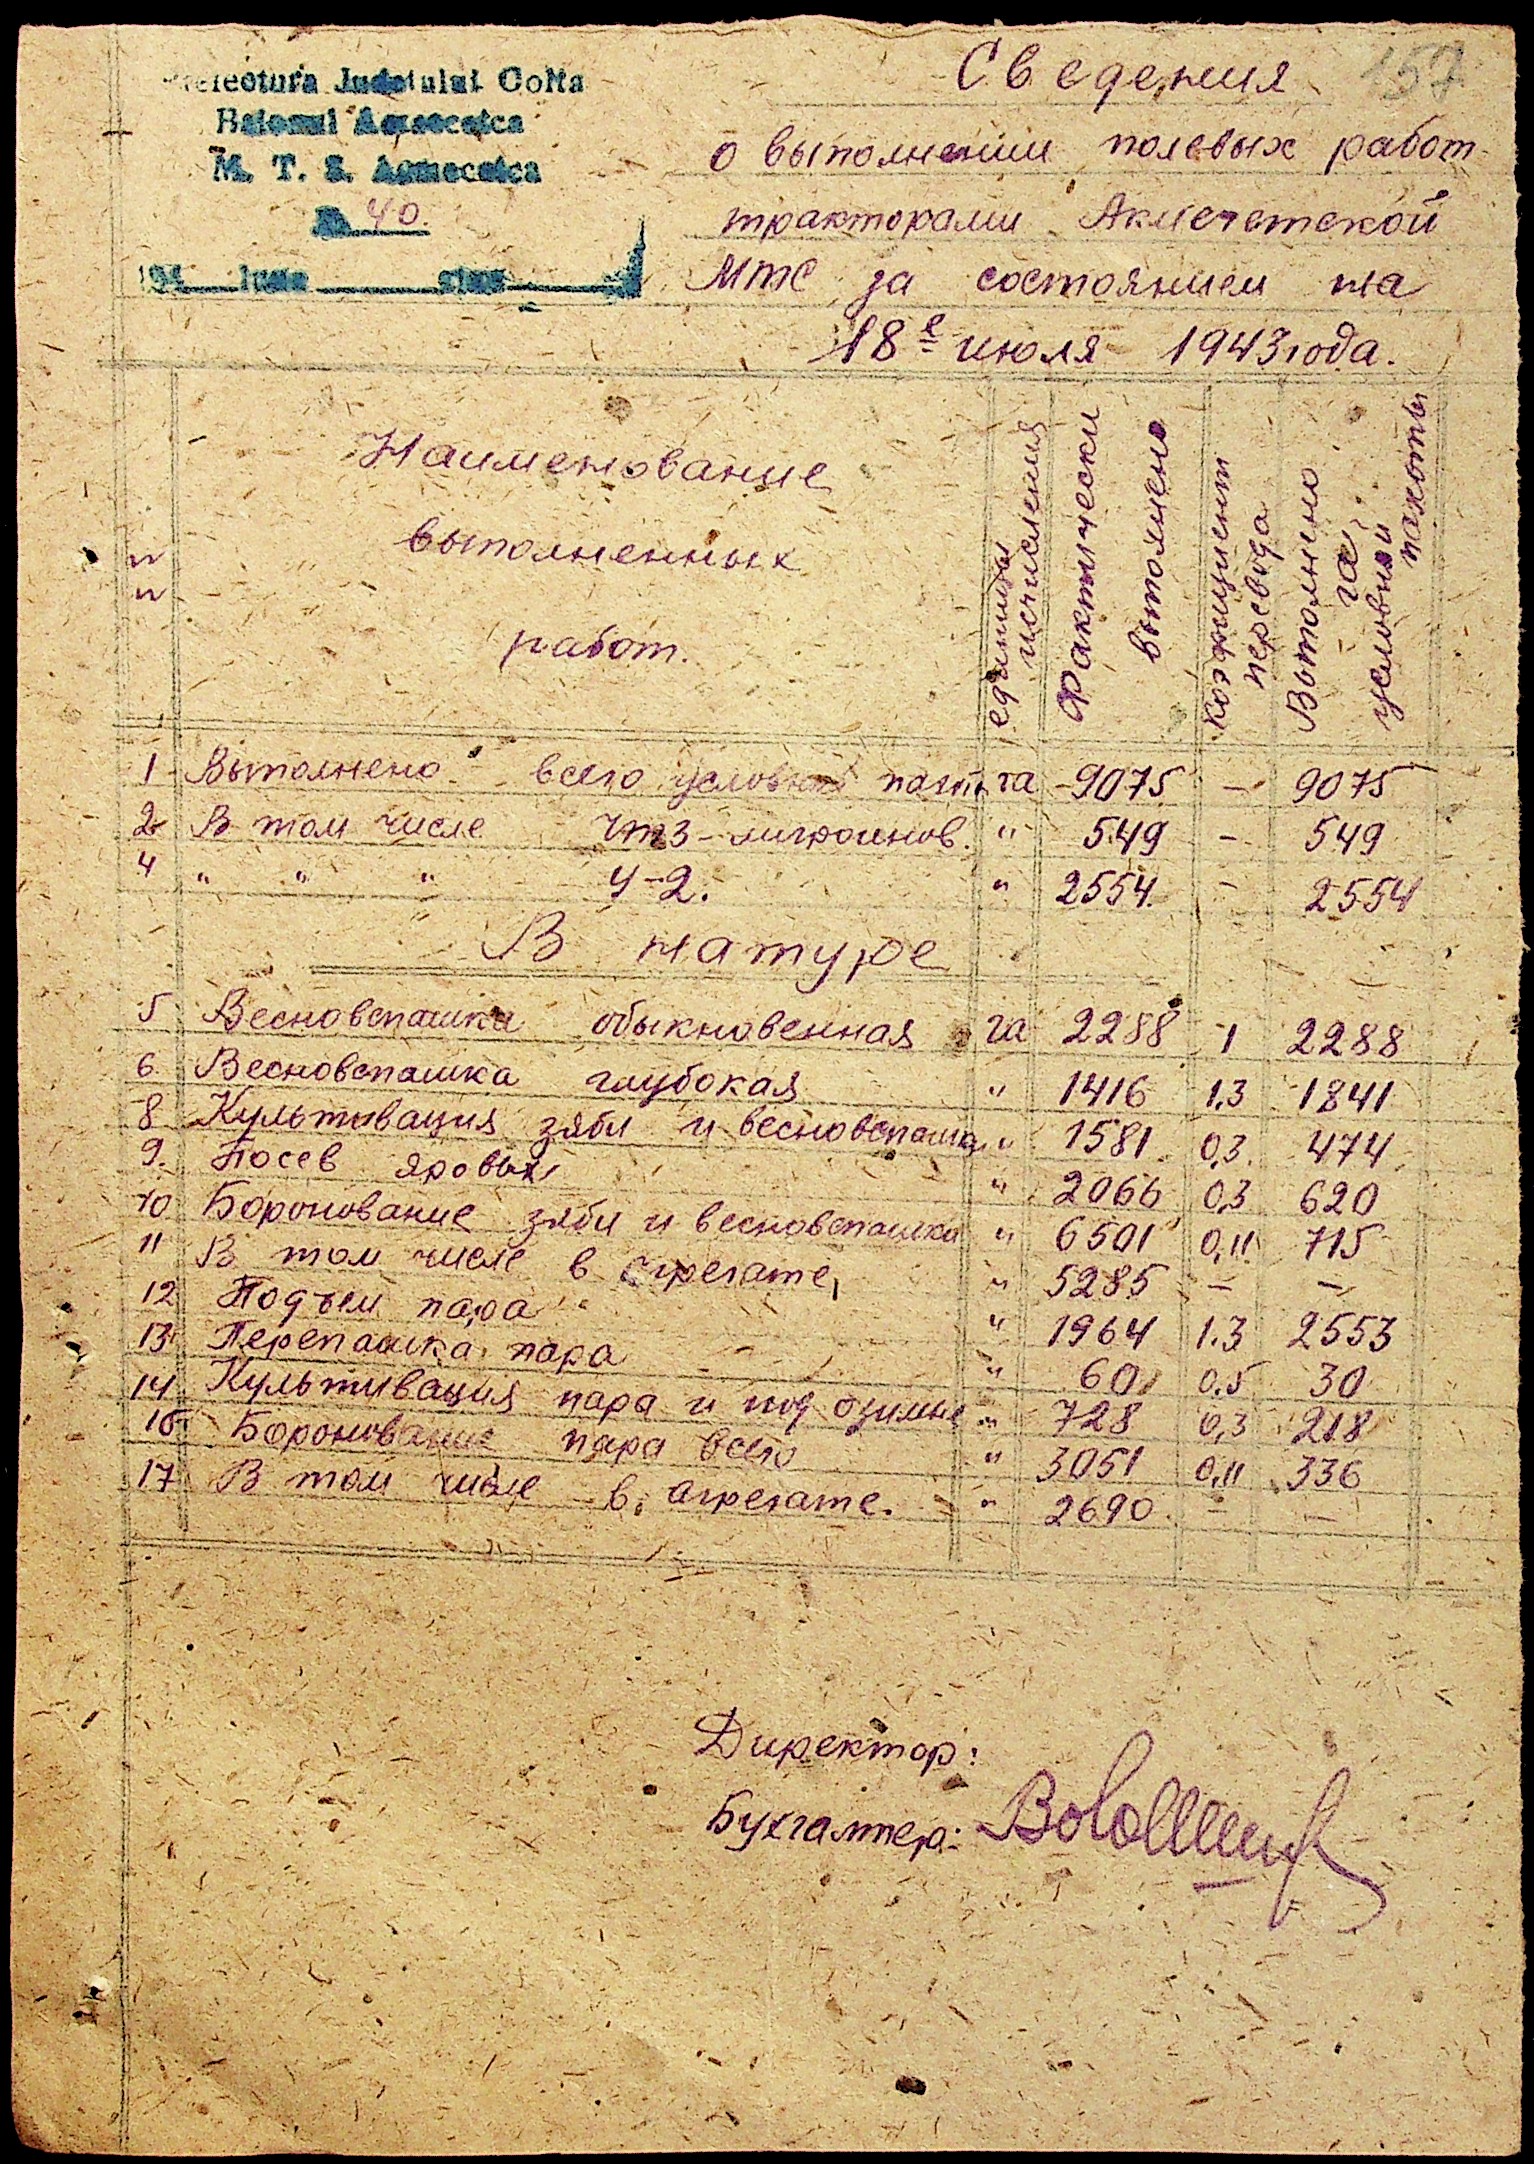 157
Prefectura Judetului Golta
Raionul Acmecetca
M. T. S. Acmecetca
№ 40.
194 luna ziua
Сведения
о выполнении полевых работ
тракторами Акмечетской
МТС за состоянием на
18е июля 1943 года.
п п
Наименование выполненных работ.
единицы исчисления
Фактически выполнено
коэфициент перевода
Выполнено га условной пахоты
1 Выполнено всего условной пахоты га 9075 - 9075
2 В том числе ЧТЗ - лигроинов. " 549 - 549
4 " " " У-2. " 2554 - 2554
В натуре
5 Весновспашка обыкновенная га 2288 1 2288
6 Весновспашка глубокая " 1416 1.3 1841
8 Культивация зяби и весновспашка " 1581 0,3 474
9. Посев яровых " 2066 0,3 620
10 Боронование зяби и весновспашка " 6501 0,11 715
11 В том числе в агрегате, " 5285 - -
12 Подъем пара " 1964 1.3 2553
13 Перепашка пара " 60 0.5 30
14 Культивация пара и под озимые " 728 0,3 218
16 Боронование пара всего " 3051 0,11 336
17 В том числе в агрегате. " 2690 - -
Директор:
Бухгалтер: